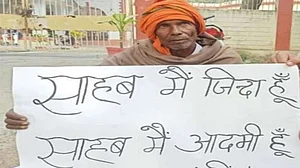 साहब मैं जिंदा हूँ
साहब मैं आदमी हूँ